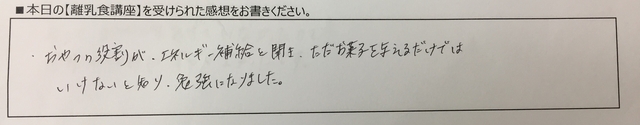 ■本日の【離乳食講座】を受けられた感想をお書きください。
・おやつの役割が、エネルギー補給と聞き、ただお菓子を与えるだけでは
いけないと知り、勉強になりました。